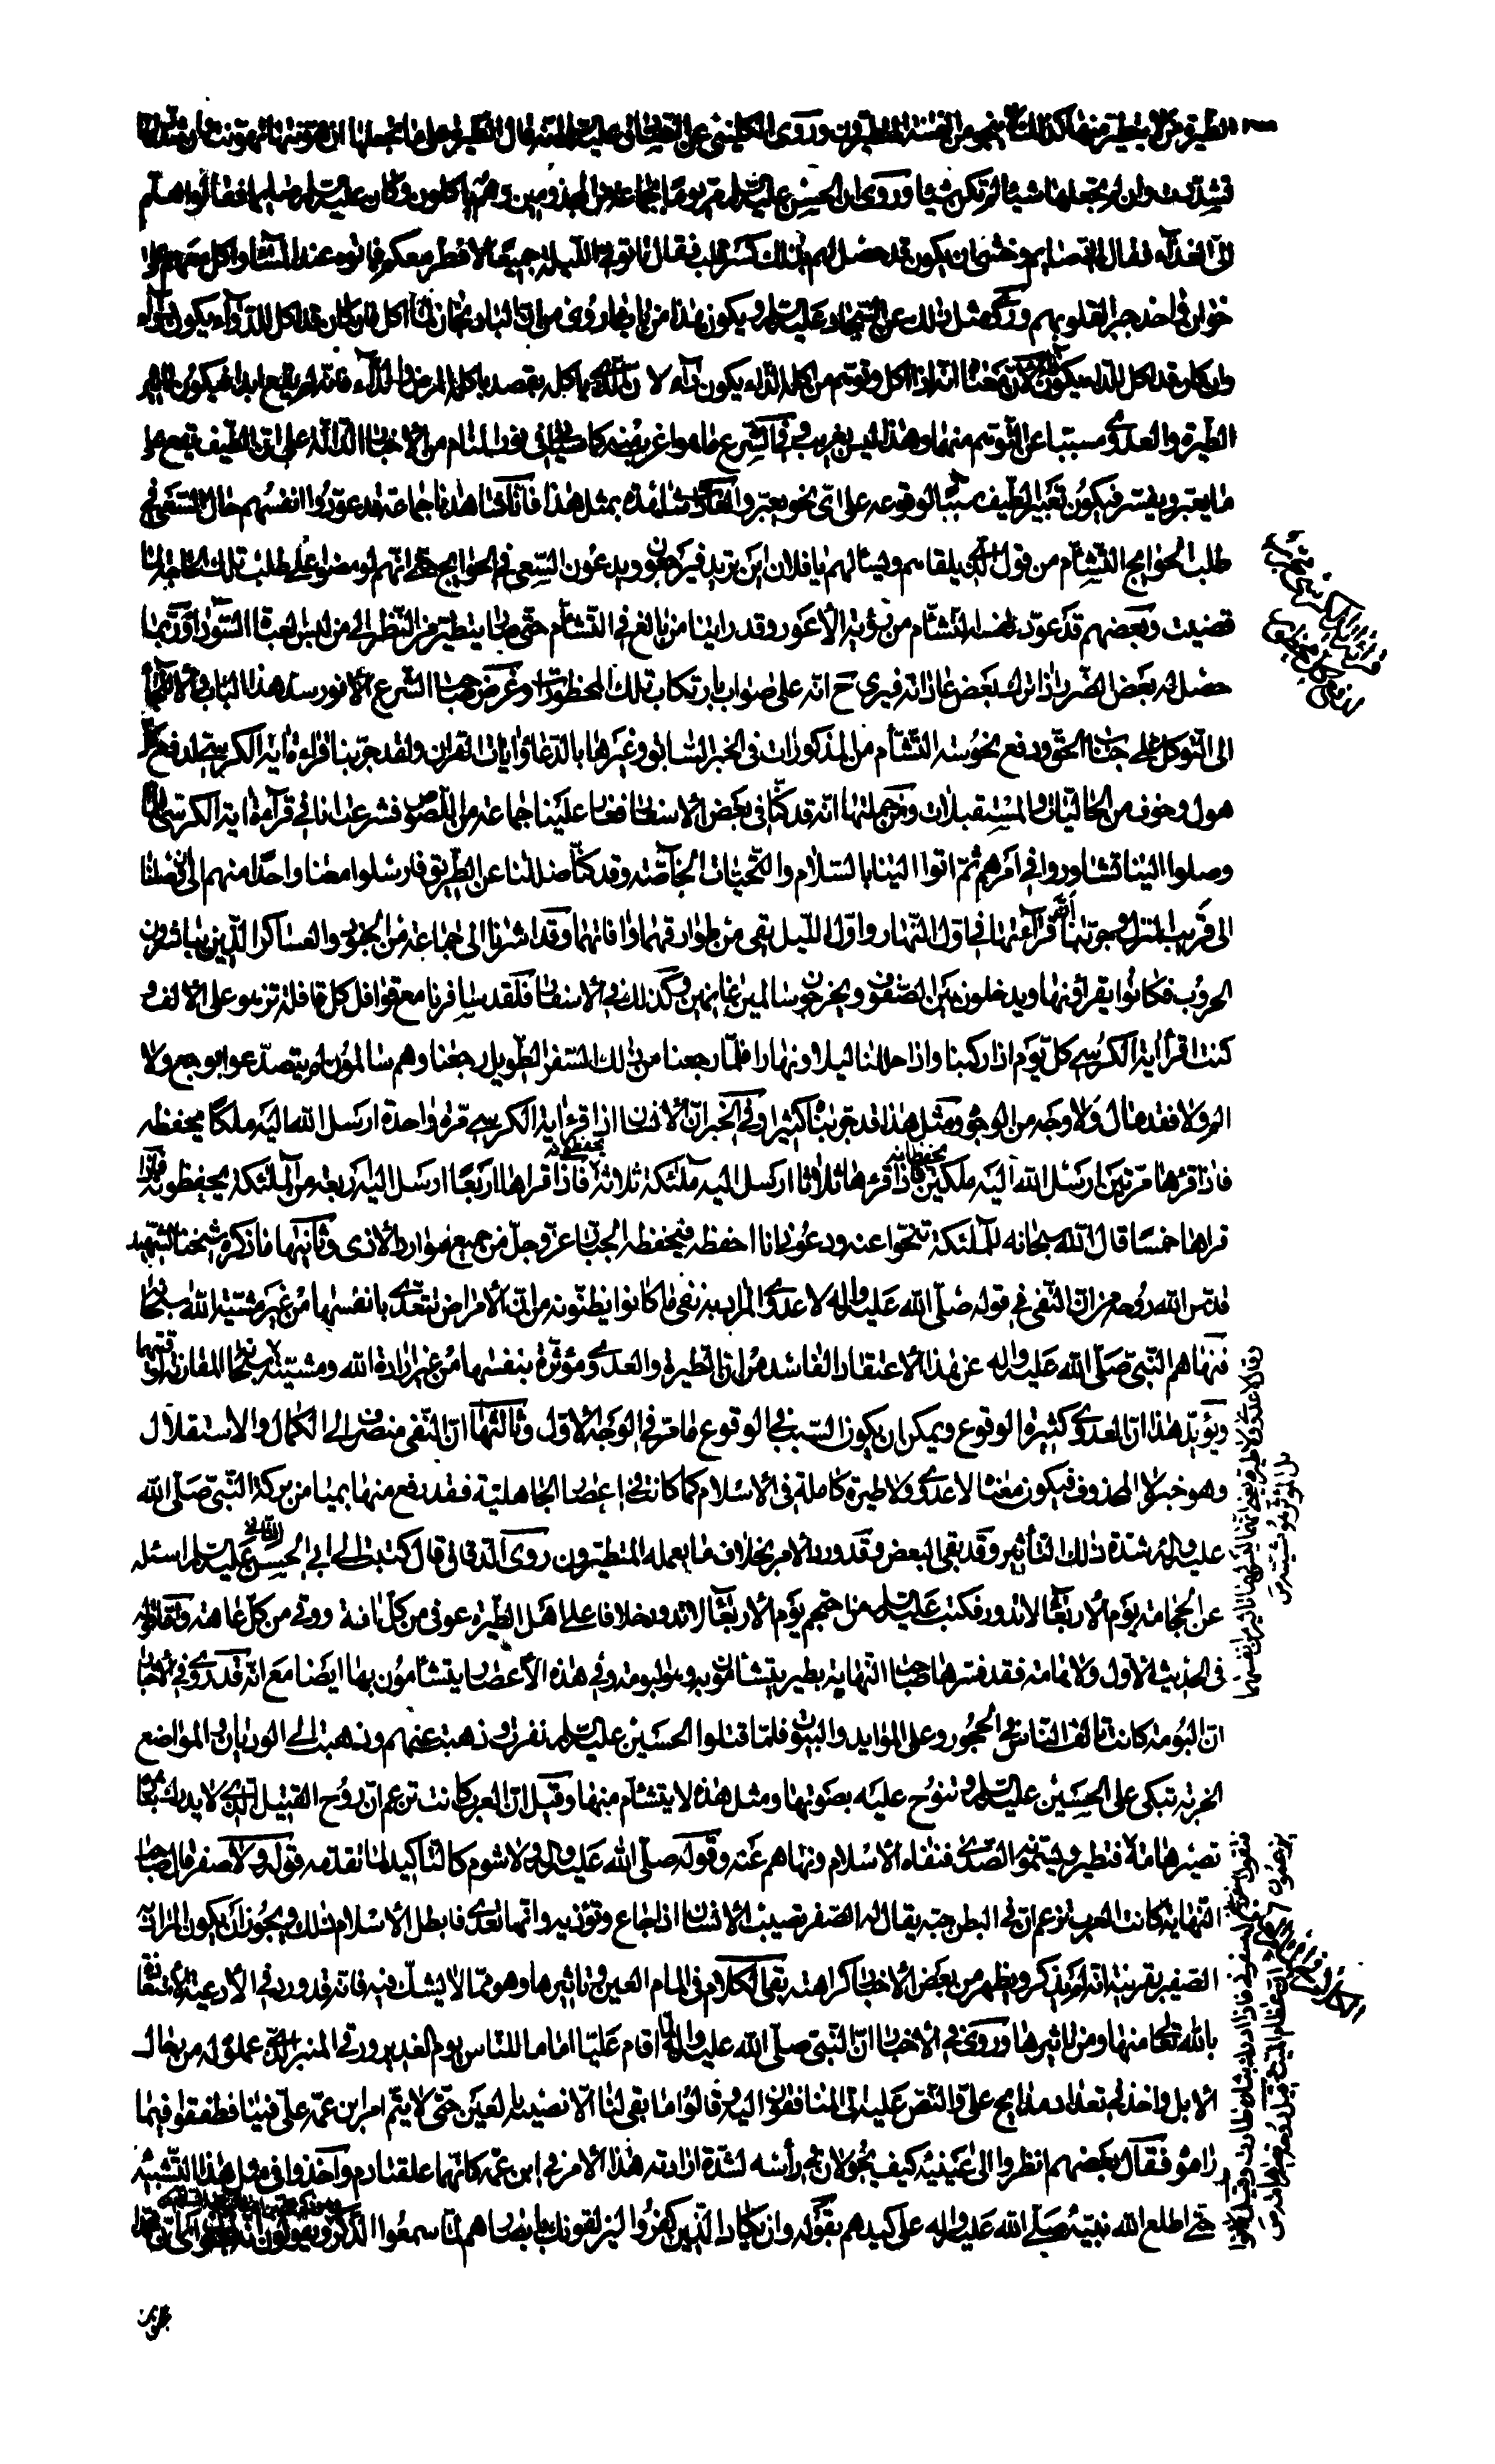 الطيرة من لا يتطير منها كذلك ينجو من الفتنة المتطيرون وروى الكليني عن الصادق عليه السلام انه قال الطيرة على ما تجعلها ان هونتها تهونت وان شددتها
تشددت وان لم تجعلها شيئا لم تكن شيئا وروى ان الحسين عليه السلام مر يوما بجماعة من المجذومين وهم ياكلون وكان عليه السلام صايما فقالوا هلم
الى الغداء فقال اني صايم وخشي ان يكون قد حصل لهم بذلك كسر قلب فقال تاتوني الليلة جميعا لافطر معكم فاتوه عند المساء واكل معهم على
خوان واحد جبرا لقلوبهم وروى مثل ذلك عن السجاد عليه السلام ويكون هذا من باب ما روى من ان الباذنجان اذا اكل فان كان قد اكل للدواء يكون دواء
وان كان قد اكل للداء يكون داء لان معناه انه اذا اكل وتوهم من اكله الداء يكون داء لا ان الذي ياكله يقصد باكله المرض والداء فانه لم يقع ابدا فيكون تاثير
الطيرة والعدوى مسببا عن التوهم منهما وهذا ليس بغريب في الشرع على ما هو اغرب منه كما سياتي في نور المنام من الاخبار الدالة على ان الطيف يقع على
ما يعبر ويفسر فيكون تعبير الطيف سببا لوقوعه على اي نحو يعبر والعادة شاهدة بمثل هذا فانا قد شاهدنا جماعة قد عودوا انفسهم حال السعي في
طلب الحوايج التشأم من قول الذي يلقاهم ويسألهم يا فلان اين تريد فيرجعون ويدعون السعي في الحوايج حتى انهم لو مضوا على طلب تلك الحاجة لما
قضيت وبعضهم قد عود نفسه التشأم من رؤية الاعور وقد راينا من بالغ في التشأم حتى صار يتطير من النظر الى من لبس لعبة السواد وربما
حصل له بعض الضرر اذا ترك بعض عاداته فيرى ح انه على صواب بارتكاب تلك المحظورات وغرض صاحب الشرع الانور سد هذا الباب
الى التوكل على جناب الحق ودفع نحوسة التشأم من المذكورات في الخبر السابق وغيرها بالدعاء وايات القران ولقد جربنا قراءة اية الكرسي لدفع كل
هول وخوف من الحاليات والمستقبلات ومن جملتها انه قد كنا في بعض الاسفار فغار علينا جماعة من اللصوص فشرعت انا في قرآءة اية الكرسي فلما
وصلوا الينا تشاوروا في امرهم ثم اتوا الينا بالسلام والتحيات الخاصة وقد كنا ضللنا عن الطريق فارسلوا معنا واحدا منهم الى ان وصلنا
الى قريب المنزل وجربنا ان قرآءتها في اول النهار واول الليل يقي من طوارقهما وافاتهما وقد اشرنا الى جماعة من الجنود والعساكر الذين يباشرون
الحروب فكانوا يقرأونها ويدخلون بين الصفوف ويخرجون سالمين غانمين وكذلك في الاسفار فلقد سافرنا مع قوافل كل قافلة تزيد على الالف
كنت اقرأ اية الكرسي كل يوم اذا ركبنا واذا حللنا ليلا ونهارا فلما رجعنا من ذلك السفر الطويل رجعنا وهم سالمون لم يتصدعوا بوجع ولا
الم ولا فقد مال ولا وجه من الوجوه ومثل هذا قد جربناه كثيرا وفي الخبر ان الانسان اذا قرء اية الكرسي مرة واحدة ارسل الله اليه ملكا يحفظه
فاذا قرءها مرتين ارسل الله اليه ملكين يحفظانه فاذا قرءها ثلاثا ارسل اليه ملئكة ثلاثة يحفظونه فاذا قراها اربعا ارسل اليه اربعة من الملئكة يحفظونه فاذا
قراها خمسا قال الله سبحانه للملئكة تنحوا عنه ودعوني انا احفظه فيحفظه الجبار عز وجل من جميع موارد الاذى وثانيها ما ذكره شيخنا الشهيد
قدس الله روحه من ان النفى في قوله صلى الله عليه واله لا عدوى المراد به نفى ما كانوا يظنونه من ان الامراض تتعدى بانفسها من غير مشية الله سبحانه
فنهاهم النبي صلى الله عليه واله عن هذا الاعتقاد الفاسد من ان الطيرة والعدوى مؤثرة بنفسها من غير ارادة الله ومشيته
ويؤيد هذا ان العدوى كثيرة الوقوع ويمكن ان يكون السبب في الوقوع ما مر في الوجه الاول وثالثها ان النفى منصرف الى الكمال والاستقلال
وهو خبر لا المحذوف فيكون معناه لا عدوى ولا طيرة كاملة في الاسلام كما كانت في اعصار الجاهلية فقد رفع منها يمينا من بركة النبي صلى الله
عليه واله شدة ذلك التأثير وقد بقي البعض وقد ورد الامر بخلاف ما يعمله المتطيرون روى الدقاق قال كتبت الى ابي الحسن الثاني عليه السلام اسئله
عن الحجامة يوم الاربعاء لا تدور فكتب عليه السلام من احتجم يوم الاربعاء لا تدور خلافا على اهل الطيرة عوفى من كل افة ووقى من كل عاهة واما قوله
في الحديث الاول ولا هامة فقد فسرها صاحب النهاية بطير يتشأمون به وهو البومة وفي هذه الاعصار يتشأمون بها ايضا مع انه قد روى في الاخبار
ان البومة كانت تالف الناس في الحجور وعلى الموايد والبيوت فلما قتلوا الحسين عليه السلام نفرت وذهبت عنهم وذهبت الى الوديان والمواضع
الخربة تبكي على الحسين عليه السلام وتنوح عليه بصوتها ومثل هذه لا يتشأم منها وقيل ان العرب كانت تزعم ان روح القتيل الذي لا يدرك بثاره
تصير هامة فتطير ويسمون الصدى فنفاه الاسلام ونهاهم عنه وقوله صلى الله عليه واله ولا شوم كالتاكيد لما تقدمه قوله ولا صفر قال صاحب
النهاية كانت العرب تزعم ان في البطن حية يقال له الصفر تصيب الانسان اذا جاع وتؤذيه وانها تعدى فابطل الاسلام ذلك ويجوز ان يكون المراد به
الصفير بقرينة انه لم يذكر ويظهر من بعض الاخبار كراهته بقى الكلام في المام العين وتاثيرها وهو مما لا يشك فيه فانه قد ورد في الادعية الاستعاذة
بالله تعالى منها ومن تاثيرها وروى في الاخبار ان النبي صلى الله عليه واله لما اقام عليا اماما للناس يوم الغدير ورقى المنبر الذي عملوه له من رحال
الابل واخذ في تعداد مدايح علي والنص عليه اتى المنافقون اليه وقالوا ما بقى لنا الا نصيبه بالعين حتى لا يتم امر ابن عمه علي فينا فطفقوا فيما
راموه فقال بعضهم انظروا الى عينيه كيف يحولان في رأسه لشدة ارادته هذا الامر في ابن عمه كانهما علقتا دم واخذوا في مثل هذا التشبيه
حتى اطلع الله نبيه صلى الله عليه واله على كيدهم بقوله وان يكاد الذين كفروا ليزلقونك بابصارهم لما سمعوا الذكر ويقولون انه